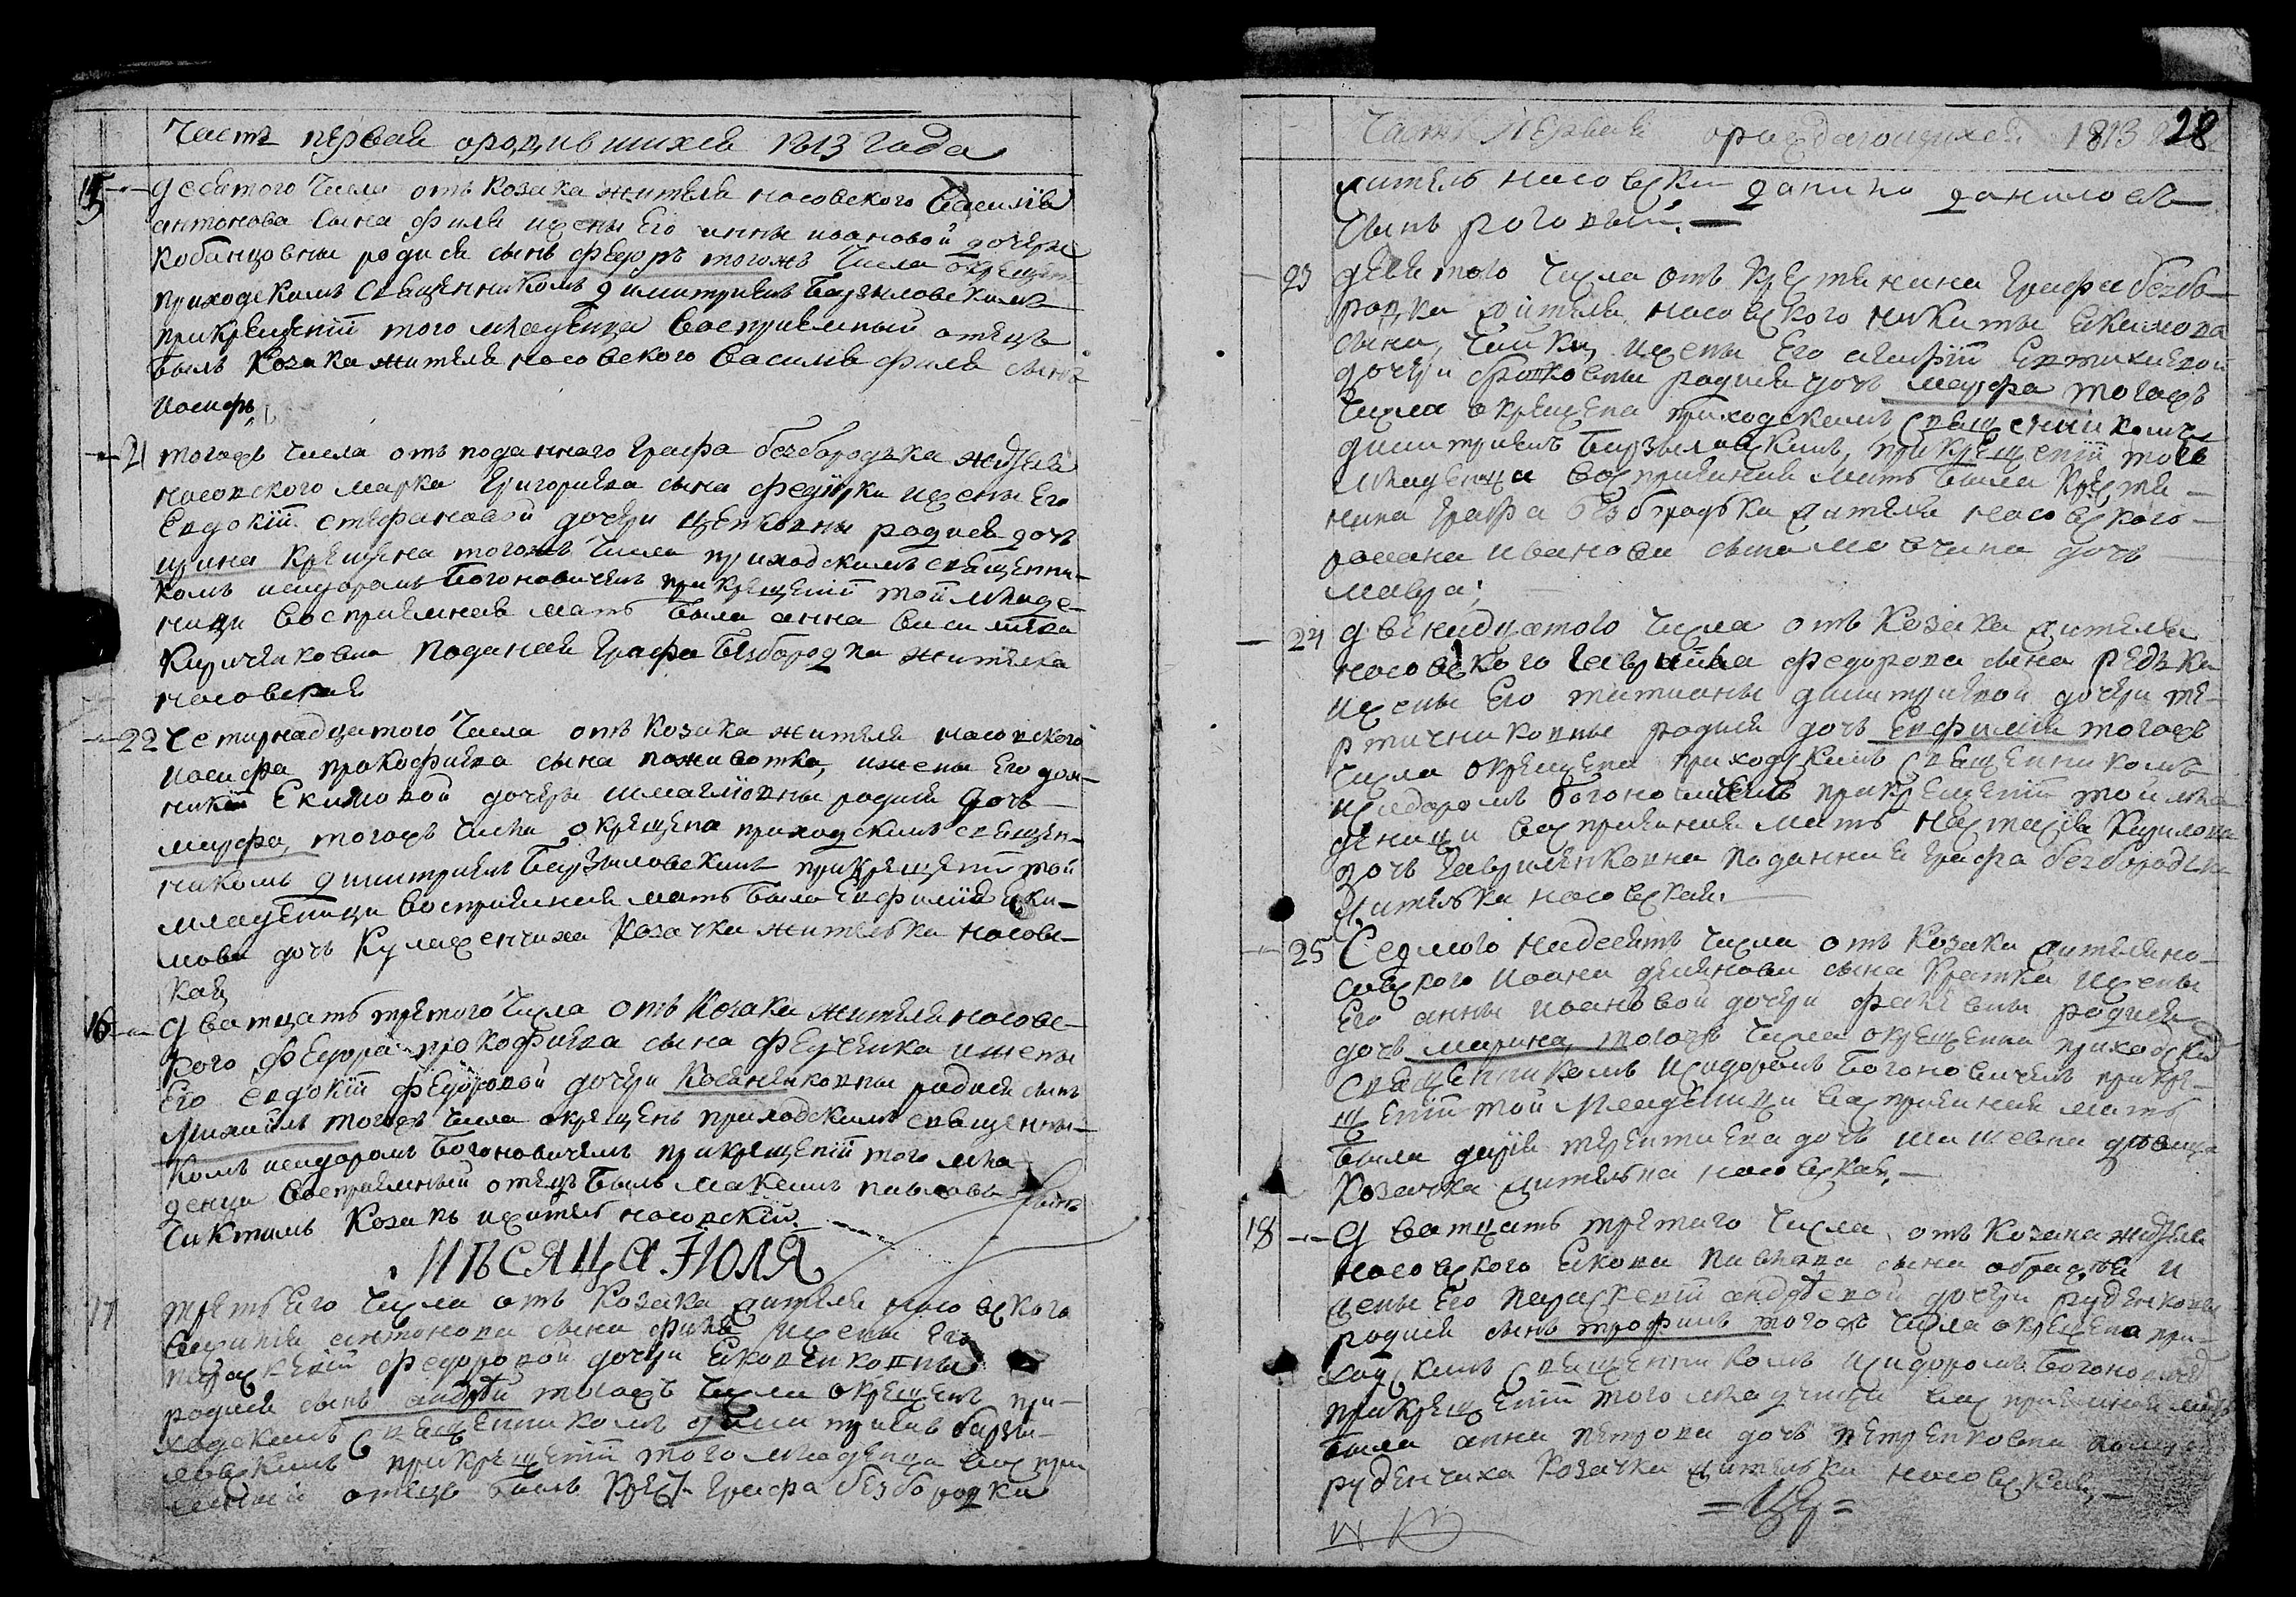 Часть первая ородившихся 1813 года
15 десятого числа отъ козака жителя носовского Василія
антонова сына филя ижены Его анны ивановой дочери
кобанцовны родися сынъ феодоръ тогожъ числа окрещен
приходскимъ священникомъ димитриемъ Барзиловскимъ
прикрещеніи того младенца восприемный отецъ
былъ козака жителя носовского василія филя сынъ
иосифъ
21 тогожъ числа отъ поданного Графа безбородька жителя
носовского марка Григориева сына федирки ижены Его
Евдокіи стефановой дочери родися дочь
ирина крещена тогожъ числа приходскимъ священни-
комъ исидоромъ Богоновичемъ прикрещеніи той младе-
ници восприемная мать была анна василиева
Киричековна поданная Графа Безбородка жителка
носовская
22 четирнадцатого числа отъ козака жителя носовского
иосифа прокофиева сына поживотка, ижены Его дом-
никіи Екимовой дочери шмаглювны родися дочь
марфа, тогожъ числа окрещена приходскимъ священ-
никомъ димитриемъ Барзиловскимъ прикрещеніи той
младеници восприемная мать была Евфимія яки-
мова дочь Кулаженчиха козачка жителька носовс-
кая
16 дватцать третого числа отъ козака жителя носовс-
кого феодора прокофиева сына фесченка ижены
Его евдокіи федоровой дочери Касяненковны родися сынъ
Михаилъ тогожъ числа окрещенъ приходскимъ священни-
комъ исидоромъ Богоновичемъ прикрещеніи того мла-
денца восприемный отецъ былъ максимъ павловъ сынъ
козакъ ижитель носовскій
МѢСЯЦА ІЮЛЯ
17 третьего числа отъ козака жителя носовского
василия антонова сына филя ижены Его
параскевіи федоровой дочери Яковенковны
родися сынъ андрѣй тогожъ числа окрещенъ при-
ходскимъ священникомъ димитриемъ барзи-
ловскимъ прикрещеніи того младенца воспри-
емный отецъ былъ крест: Графа безбородки
Часть Первая ораждающихся 1813 28
житель носовски данило даниловъ
сынъ роговый.
23 девятого числа отъ крестянина Графа безбо-
родка жителя носовского никиты екимова
сына, чайки, ижены Его агафіи Евтихиевой
дочери родися дочь марфа тогожъ
числа окрещена приходскимъ священникомъ
димитриемъ Барзиловскимъ, прикрещеніи той
младеници восприемная мать была крестя-
нина Графа безбородька жителя носовского
романа иванова сына мовчана дочь
мавра;
24 двенадцатого числа отъ козака жителя
носовского Гавриила федорова сына редька
ижены Его татианы димитриевой дочери те-
ртичниковны родися дочь Евфимия тогожъ
числа окрещена приходскимъ священникомъ
исидоромъ богоновичемъ прикрещеніи той мла-
деници восприемная мать настасия Кирилова
дочь Гавриленковна поданная Графа безбородька
жителька носовская.
25 Седмого надесять числа отъ козака жителя но-
совского иоана демянова сына Кратка ижены
Его анны иоановой дочери родися
дочь марина, тогожъ числа окрещенна приходским
священникомъ исидоромъ Богоновичемъ прикре-
щеніи той младеници восприемная мать
была дарія терентиева дочь вдовица
козачка жителька носовская.
18 дватцать третаго числа отъ козака жителя
носовского якова павлова сына и
жены Его параскевіи андрѣевой дочери руденковны
родися сынъ трофимъ тогожъ числа окрещенъ при-
ходскимъ священникомъ исидоромъ Богоновичем
прикрещеніи того младенца восприемная мать
была анна петрова дочь петренковна
руденчиха козачка жителька носовская,